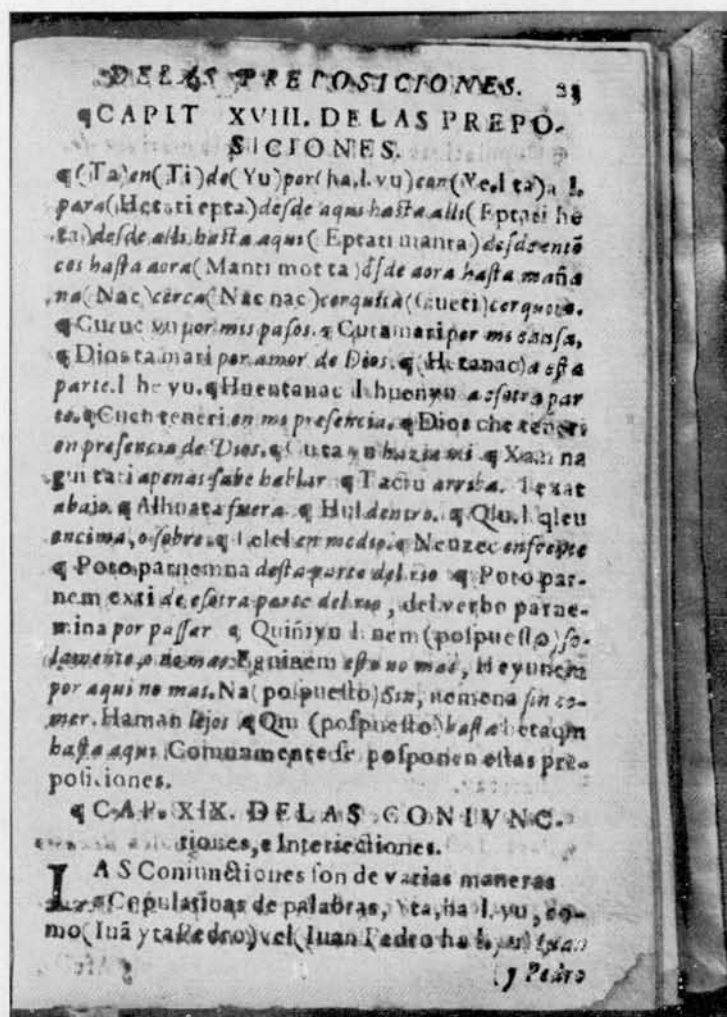 DE LAS PREPOSICIONES. 23
¶CAPIT XVIII. DE LAS PREPO-
SICIONES.
¶(Ta)en(Ti)de(Yu)por(ha.l.vu)con(Ye.l ta)a l.
para(Hetati epta)desde aqui hasta alli(Eptati he
ta)desde alli hasta aqui(Eptati manta)desde entõ
ces hasta aora(Manti mot ta)dsde aora hasta maña
na(Nac)cerca(Nac nac)cerquita(
¶Cutamari por mi causa,
¶Dios tamari por amor de Dios.¶(Hetanac)a esta
parte.l he yu.¶Huentanac .l huenyu a esotra par
te.¶ en mi presencia.¶Dios che teneri
en presencia de Dios.¶Cuta yu hazia mi ¶Xam na
apenas sabe hablar ¶Taciu arriba.
abajo.¶Alhuata fuera ¶Hul dentro.¶Qlu.l qleu
encima, o sobre.¶Lelel en medio.¶Neuzec enfrente
¶Poto parnemna desta parte del rio ¶Poto par-
nem exti de esotra parte del rio, del verbo parne-
mina por passar ¶Quiñiyu l. nem (pospuesto)so-
lamente,o no mas. esto no mas, Heyunem
por aqui no mas.Na(pospuesto)Sin, nemena sin co-
mer.Haman lejos ¶Qm (pospuesto)hasta hetaqm
hasta aqui Comunamente se posponen estas pre-
posiciones.
¶CAP. XIX. DE LAS CONIVNC-
tiones, e Interiectiones.
LAS Coniunctiones son de varias maneras
Copulatiuas de palabras, Yta,ha l.yu, co-
mo(Iuã yta Pedro)vel(Iuan Pedro ha l. yu) Iuan
y Pedro